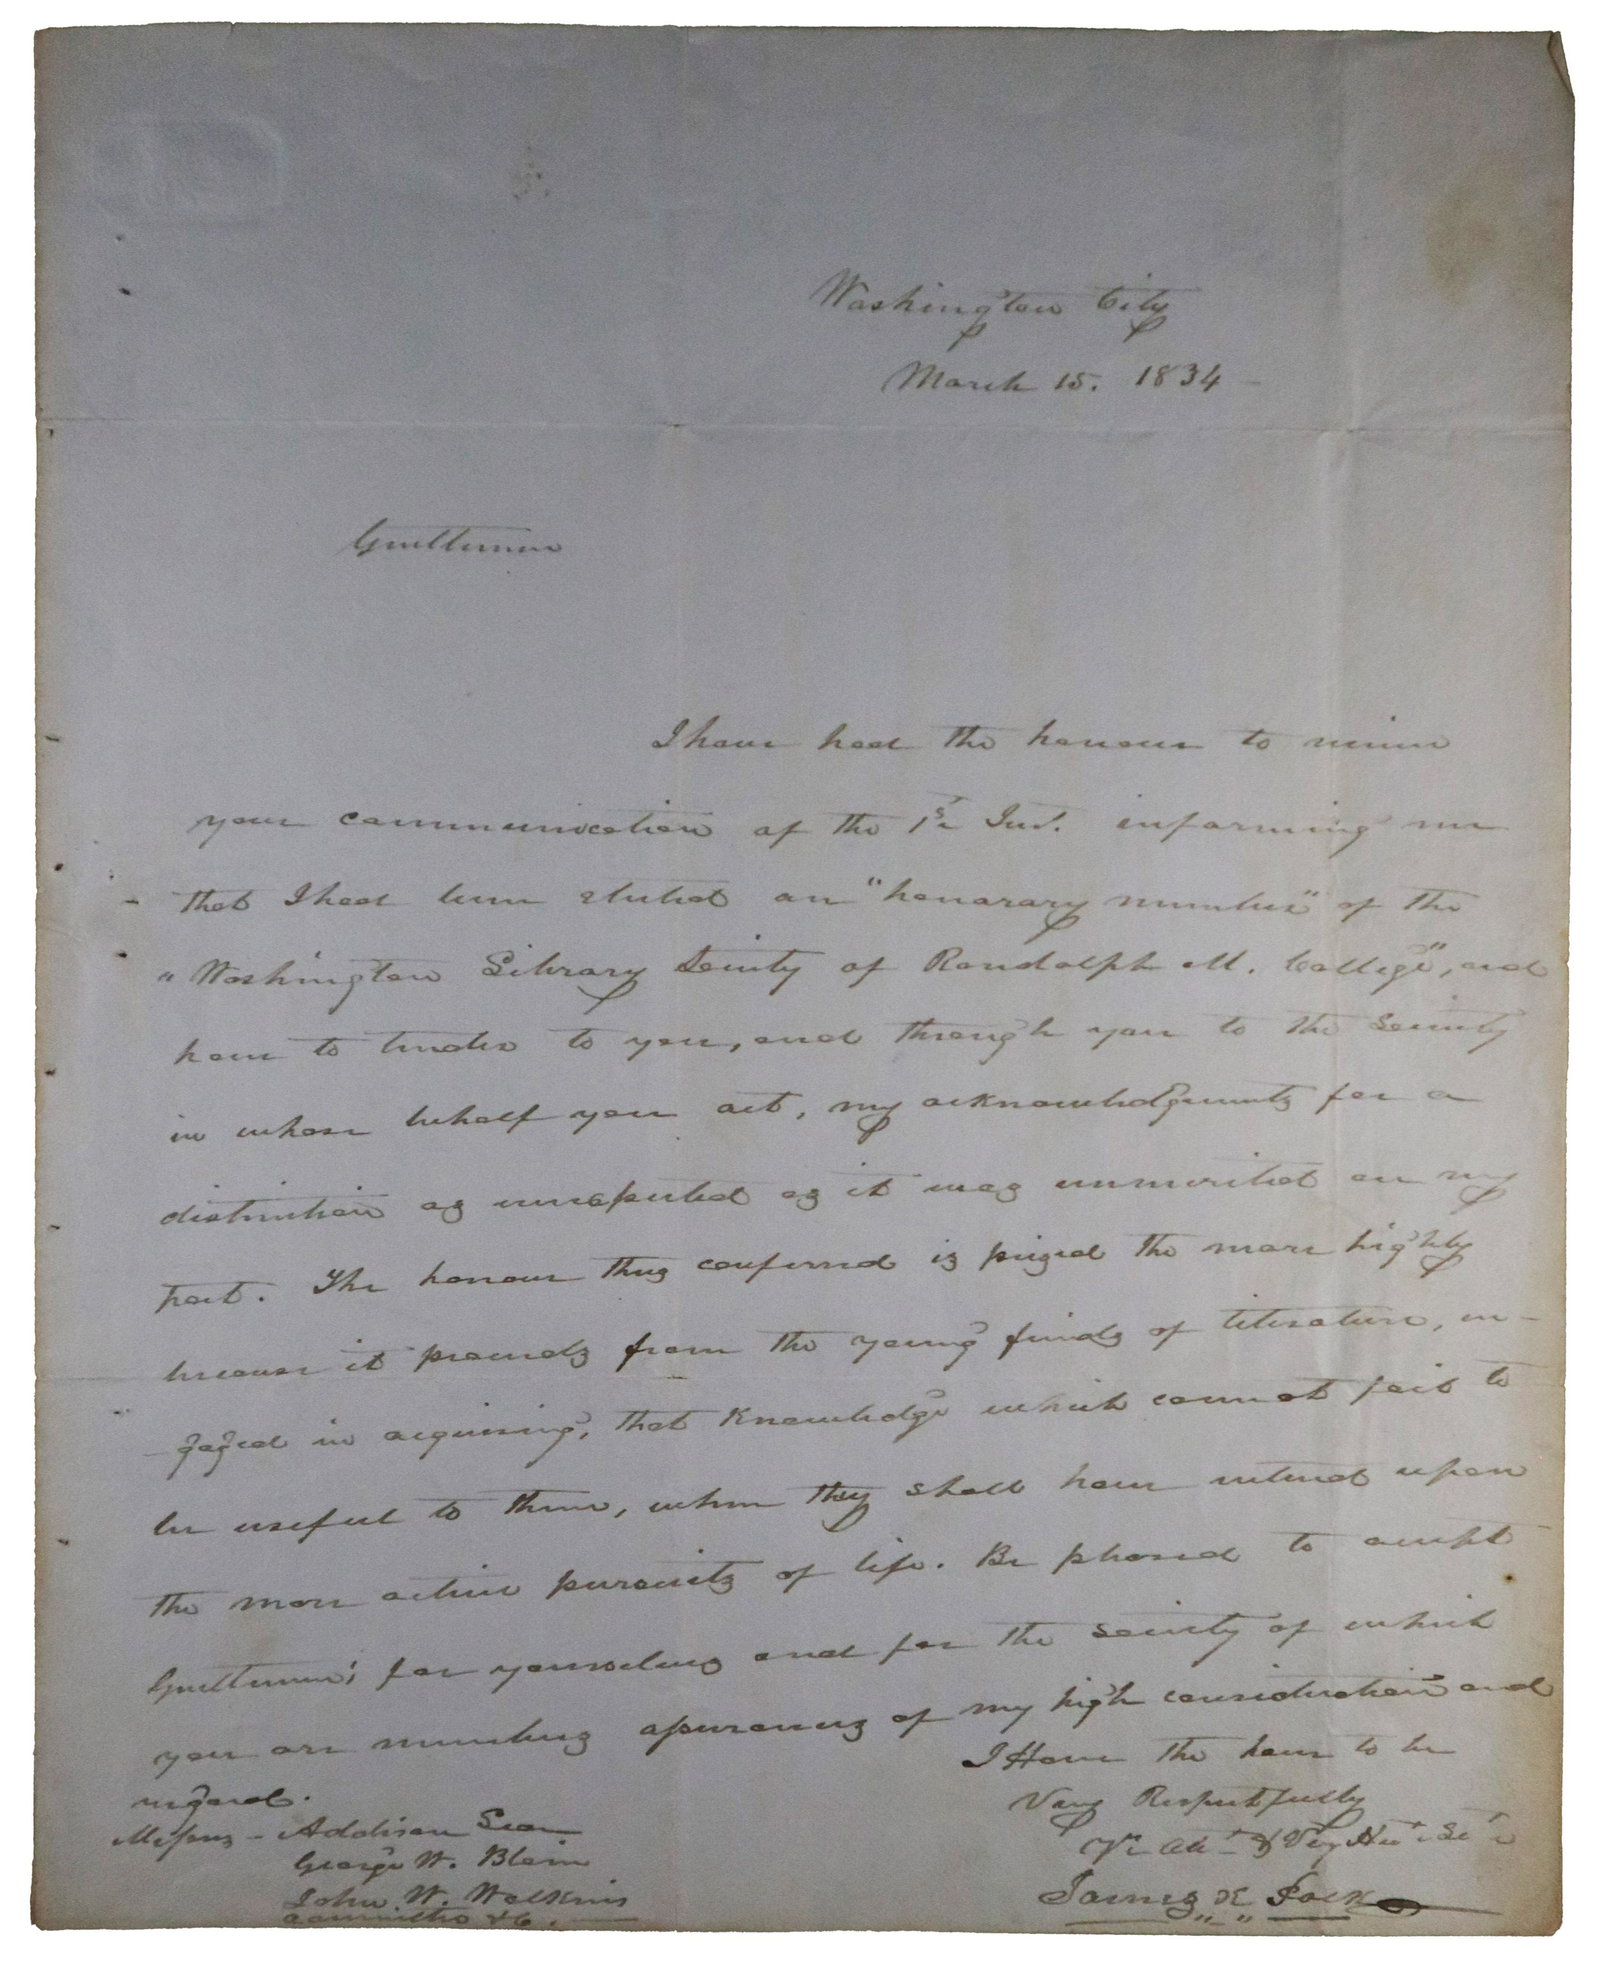 Washington City
March 15. 1834
Gentlemen
I have had the honour to receive
your communication of the 1st Inst. informing me
that I had been elected an "honorary member" of the
"Washington Library Society of Randolph M. College", and
have to tender to you, and through you to the Society
in whose behalf you act, my acknowledgements for a
distinction as unexpected as it was unmerited on my
part. The honour thus conferred is prized the more highly
because it proceeds from the young friends of literature, en-
gaged in acquiring, that Knowledge which cannot fail to
be useful to them, when they shall have entered upon
the more active pursuits of life. Be pleased to accept
Gentlemen, for yourselves and for the society of which
you are members assurances of my high consideration and
regard.
I Have the honr to be
Very Respectfully
Yr Obt & Very Hue Set
James K Polk
Messrs - Addison Lea
George W. Blain
John W. Watkins
Committee &C.